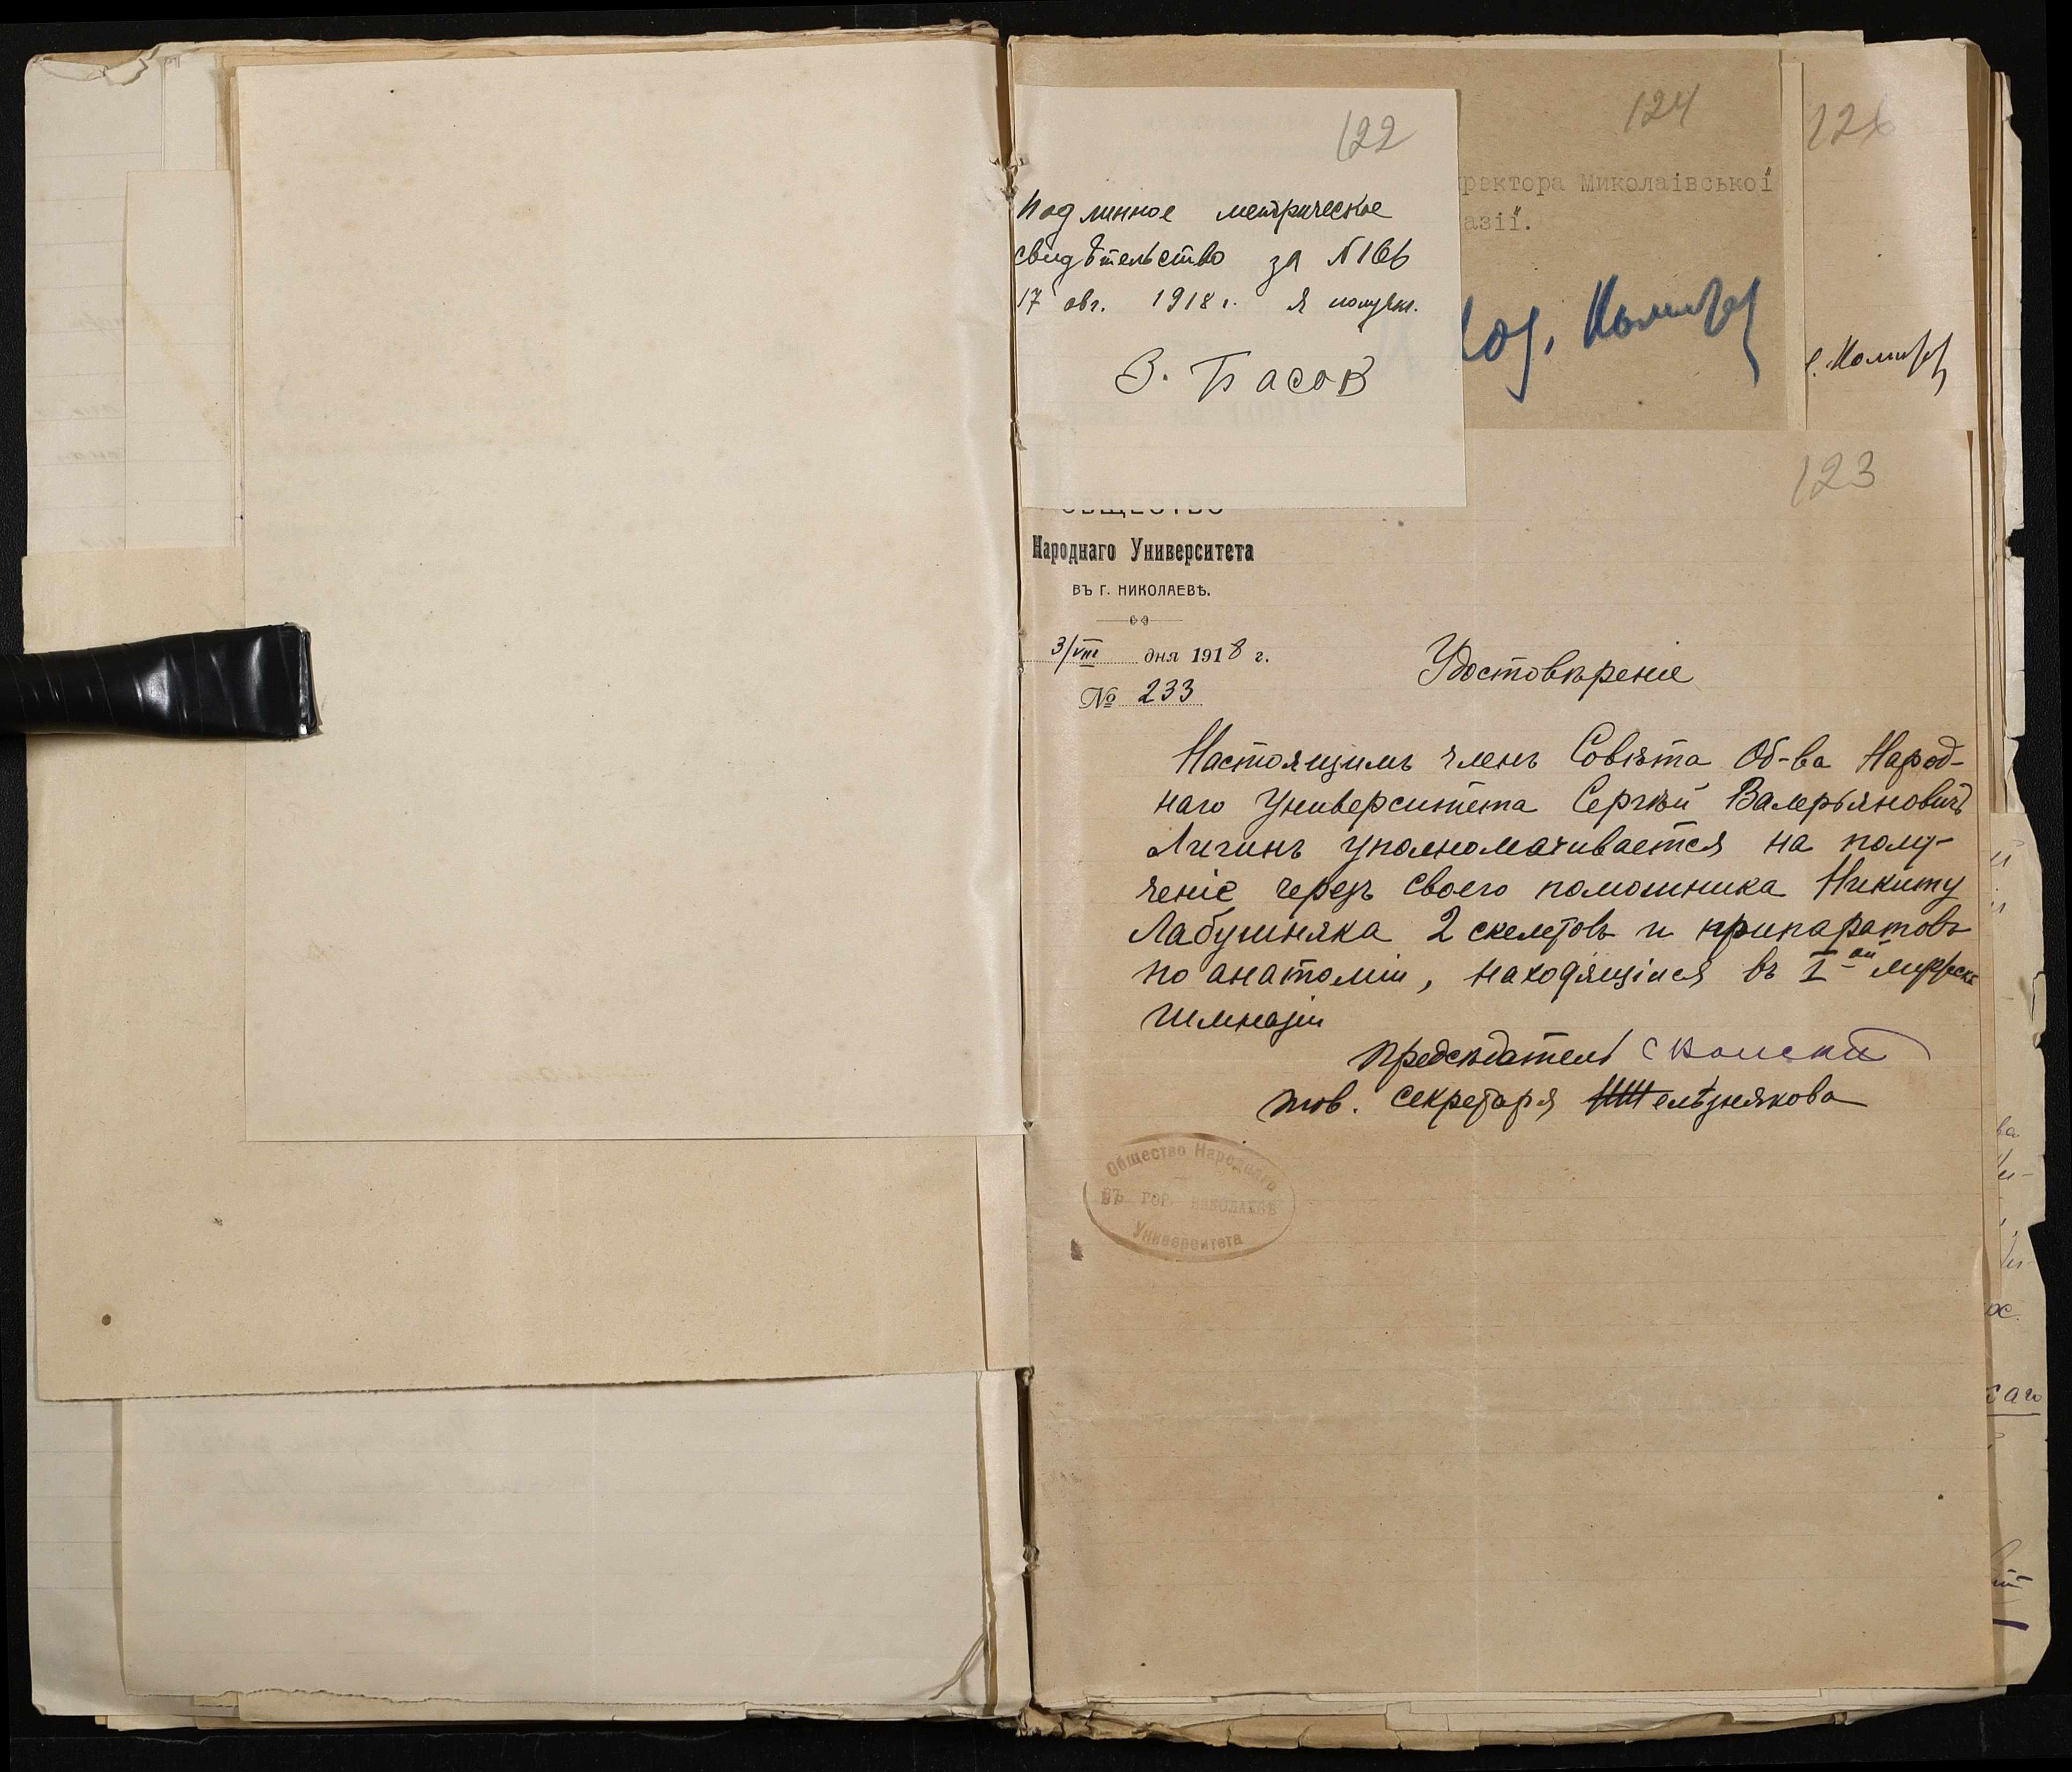 122
Подлинное метрическое
свидѣтельство за №166
17 авг. 1918 г. я получил.
В. Басов
124
иректора Миколаівської
азії.
126
123
ОБЩЕСТВО
Народнаго Университета
ВЪ Г. НИКОЛАЕВѢ.
3/VIII дня 1918 г.
№ 233
Удостовѣреніе
Настоящимъ членъ Совѣта Об-ва Народ-
наго Университета Сергѣй Валерьяновичъ
Лигинъ уполномачивается на полу-
ченіе черезъ своего помошника Никиту
Лабушняка 2 скелетовъ и припаратовъ
по анатоміи, находящіися въ I-ой мужск
гимназіи
Предсѣдатель
тов. секретаря
Общество Народнаго
ВЪ ГОР. НИКОЛАЕВѢ
Университета